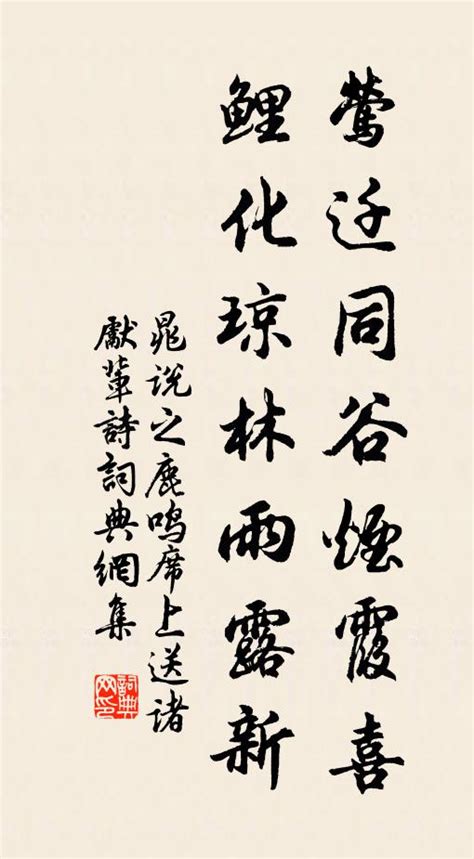 莺迁同谷煙霞喜
鲤化琼林雨露新
晁说之鹿鳴席上送诸
獻輩詩詞典網集
詞典
网印